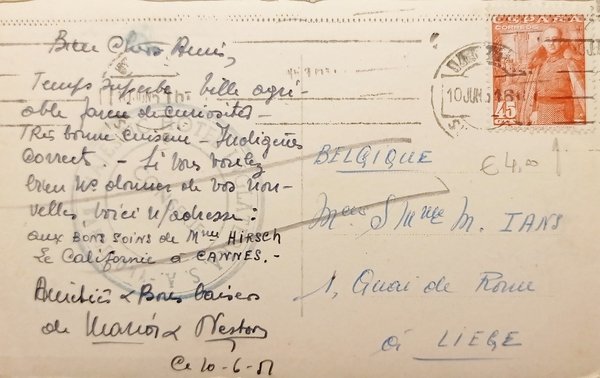 Bien Chers Amis,
Temps superbe belle agri-
able pleine de curiosités -
Très bonne cuisine - Indigènes
Correct. - Si vous voulez
bien ns donner de vos nou-
velles voici n/adresse:
aux BONS SOINS de Mme HIRSCH
Le Californie à CANNES. -
Amitiés & Bons baisers
de & Nestor
Ce 10-6-51
CORREOS
45
10 JUN 51
€4,00
BELGIQUE
M. IANS
1, Quai de Rome
à LIEGE